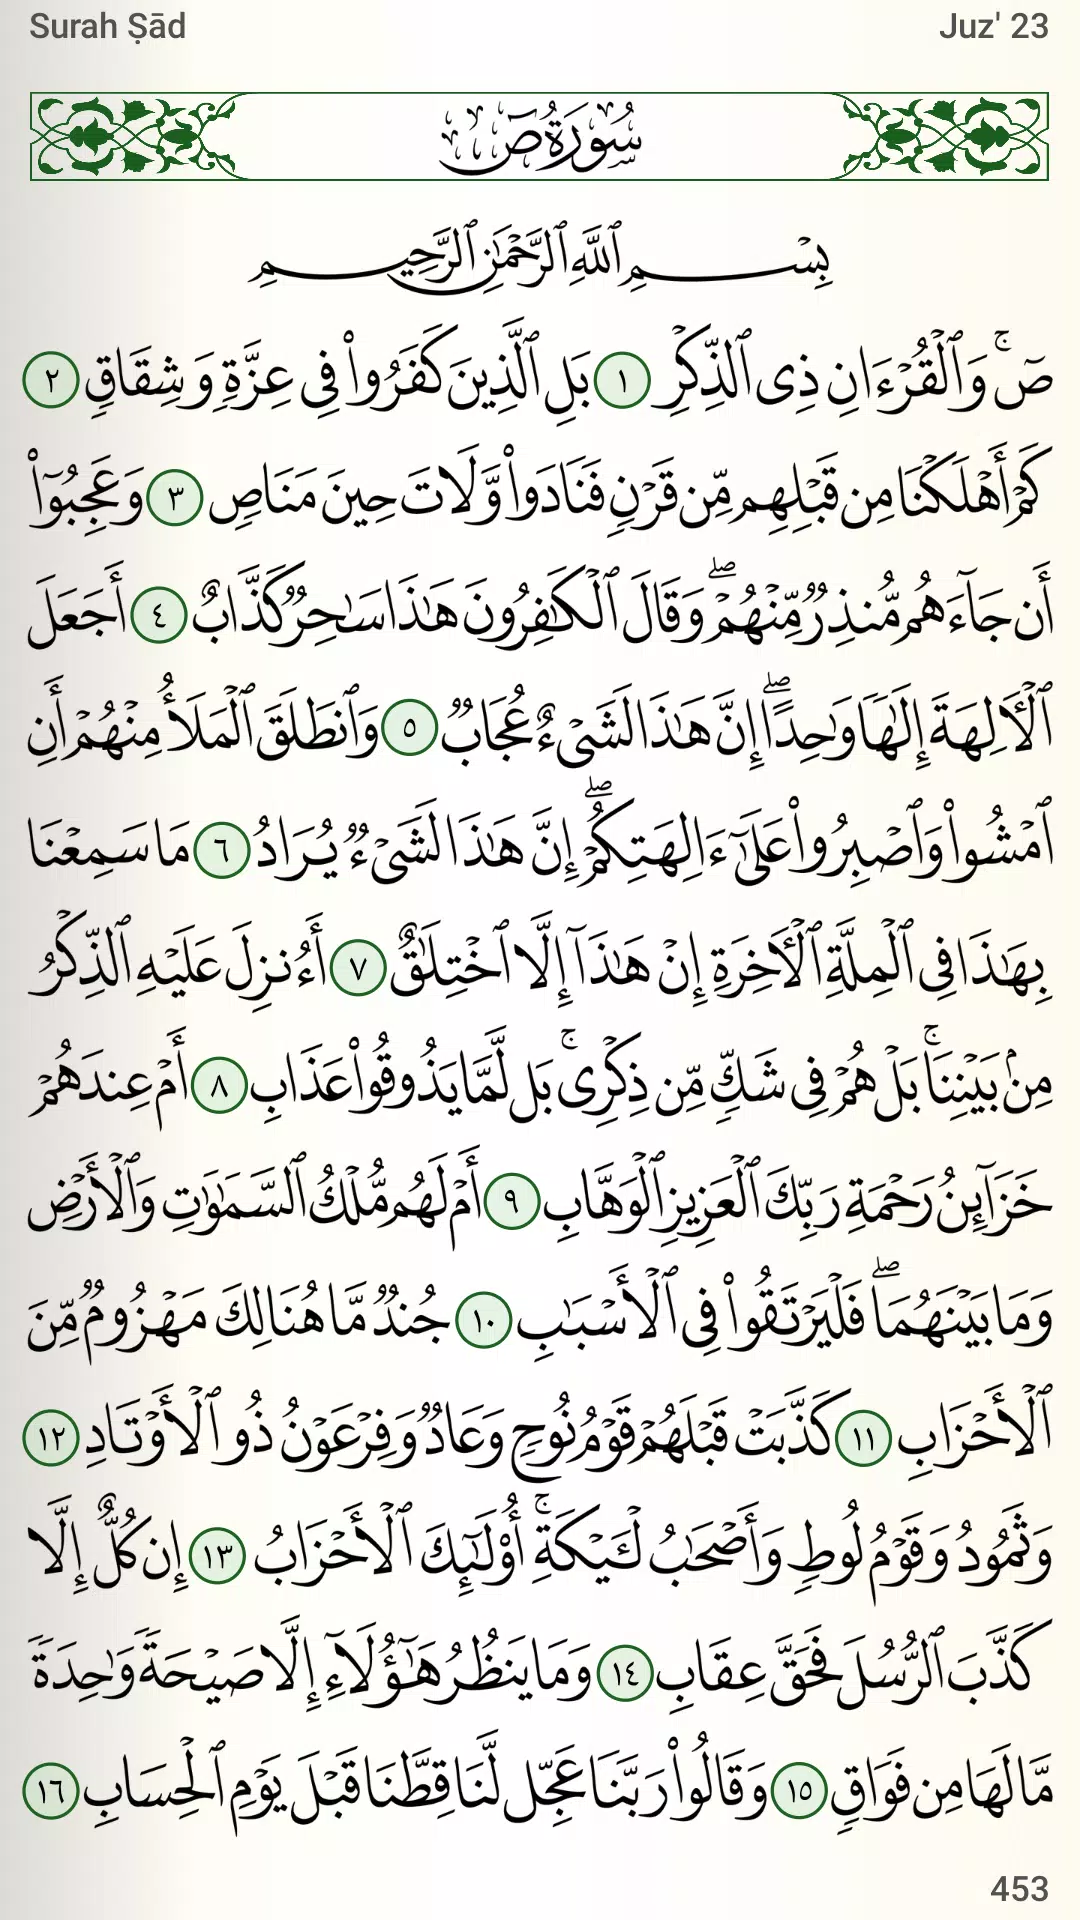 Surah Ṣād
Juz' 23
سُورَةُ صٓ
بِسْمِ ٱللَّهِ ٱلرَّحْمَـٰنِ ٱلرَّحِيمِ
صٓ ۚ وَٱلْقُرْءَانِ ذِى ٱلذِّكْرِ ١ بَلِ ٱلَّذِينَ كَفَرُوا۟ فِى عِزَّةٍ وَشِقَاقٍ ٢
كَمْ أَهْلَكْنَا مِن قَبْلِهِم مِّن قَرْنٍ فَنَادَوا۟ وَّلَاتَ حِينَ مَنَاصٍ ٣ وَعَجِبُوٓا۟
أَن جَآءَهُم مُّنذِرٌ مِّنْهُمْ ۖ وَقَالَ ٱلْكَـٰفِرُونَ هَـٰذَا سَـٰحِرٌ كَذَّابٌ ٤ أَجَعَلَ
ٱلْـَٔالِهَةَ إِلَـٰهًا وَٰحِدًا ۖ إِنَّ هَـٰذَا لَشَىْءٌ عُجَابٌ ٥ وَٱنطَلَقَ ٱلْمَلَأُ مِنْهُمْ أَنِ
ٱمْشُوا۟ وَٱصْبِرُوا۟ عَلَىٰٓ ءَالِهَتِكُمْ ۖ إِنَّ هَـٰذَا لَشَىْءٌ يُرَادُ ٦ مَا سَمِعْنَا
بِهَـٰذَا فِى ٱلْمِلَّةِ ٱلْـَٔاخِرَةِ إِنْ هَـٰذَآ إِلَّا ٱخْتِلَـٰقٌ ٧ أَءُنزِلَ عَلَيْهِ ٱلذِّكْرُ
مِنۢ بَيْنِنَا ۚ بَلْ هُمْ فِى شَكٍّ مِّن ذِكْرِى ۚ بَل لَّمَّا يَذُوقُوا۟ عَذَابِ ٨ أَمْ عِندَهُمْ
خَزَآئِنُ رَحْمَةِ رَبِّكَ ٱلْعَزِيزِ ٱلْوَهَّابِ ٩ أَمْ لَهُم مُّلْكُ ٱلسَّمَـٰوَٰتِ وَٱلْأَرْضِ
وَمَا بَيْنَهُمَا ۖ فَلْيَرْتَقُوا۟ فِى ٱلْأَسْبَـٰبِ ١٠ جُندٌ مَّا هُنَالِكَ مَهْزُومٌ مِّنَ
ٱلْأَحْزَابِ ١١ كَذَّبَتْ قَبْلَهُمْ قَوْمُ نُوحٍ وَعَادٌ وَفِرْعَوْنُ ذُو ٱلْأَوْتَادِ ١٢
وَثَمُودُ وَقَوْمُ لُوطٍ وَأَصْحَـٰبُ لْـَٔيْكَةِ ۚ أُو۟لَـٰٓئِكَ ٱلْأَحْزَابُ ١٣ إِن كُلٌّ إِلَّا
كَذَّبَ ٱلرُّسُلَ فَحَقَّ عِقَابِ ١٤ وَمَا يَنظُرُ هَـٰٓؤُلَآءِ إِلَّا صَيْحَةً وَٰحِدَةً
مَّا لَهَا مِن فَوَاقٍ ١٥ وَقَالُوا۟ رَبَّنَا عَجِّل لَّنَا قِطَّنَا قَبْلَ يَوْمِ ٱلْحِسَابِ ١٦
453